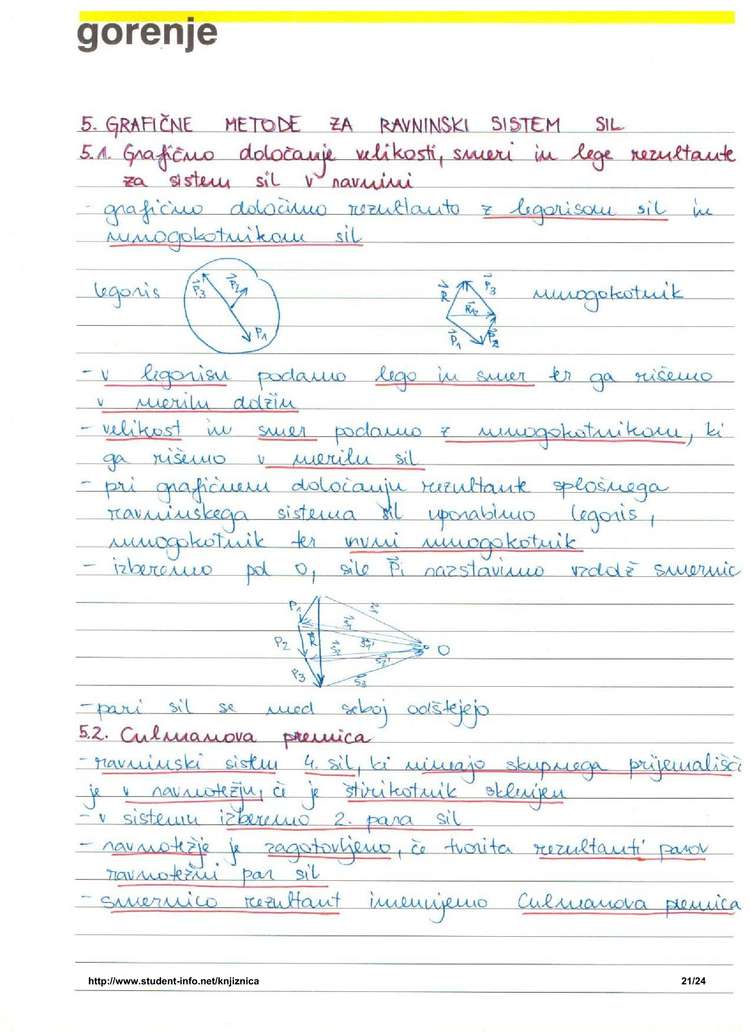 gorenje
5. GRAFIČNE METODE ZA RAVNINSKI SISTEM SIL
5.1. Grafično določanje velikosti, smeri in lege rezultante
za sistem sil v ravnini
- grafično določimo rezultanto z legorisom sil in
mnogokotnikom sil
legoris P3 P2 P1 R P3 R12 P1 P2 mnogokotnik
- v legorisu podamo lego in smer ter ga rišemo
v merilu dolžin
- velikost in smer podamo z mnogokotnikom, ki
ga rišemo v merilu sil
- pri grafičnem določanju rezultante splošnega
ravninskega sistema sil uporabimo legoris,
mnogokotnik ter vrvni mnogokotnik
- izberemo pol O, sile Pi razstavimo vzdolž smernic
P1
P2 R O
P3 S3
- pari sil se med seboj odštejejo
5.2. Culmanova premica
- ravninski sistem 4. sil, ki nimajo skupnega prijemališč
je v ravnotežju, če je štirikotnik sklenjen
- v sistemu izberemo 2. para sil
- ravnotežje je zagotovljeno, če tvorita rezultanti parov
ravnotežni par sil
- smernico rezultant imenujemo Culmanova premica
http://www.student-info.net/knjiznica 21/24